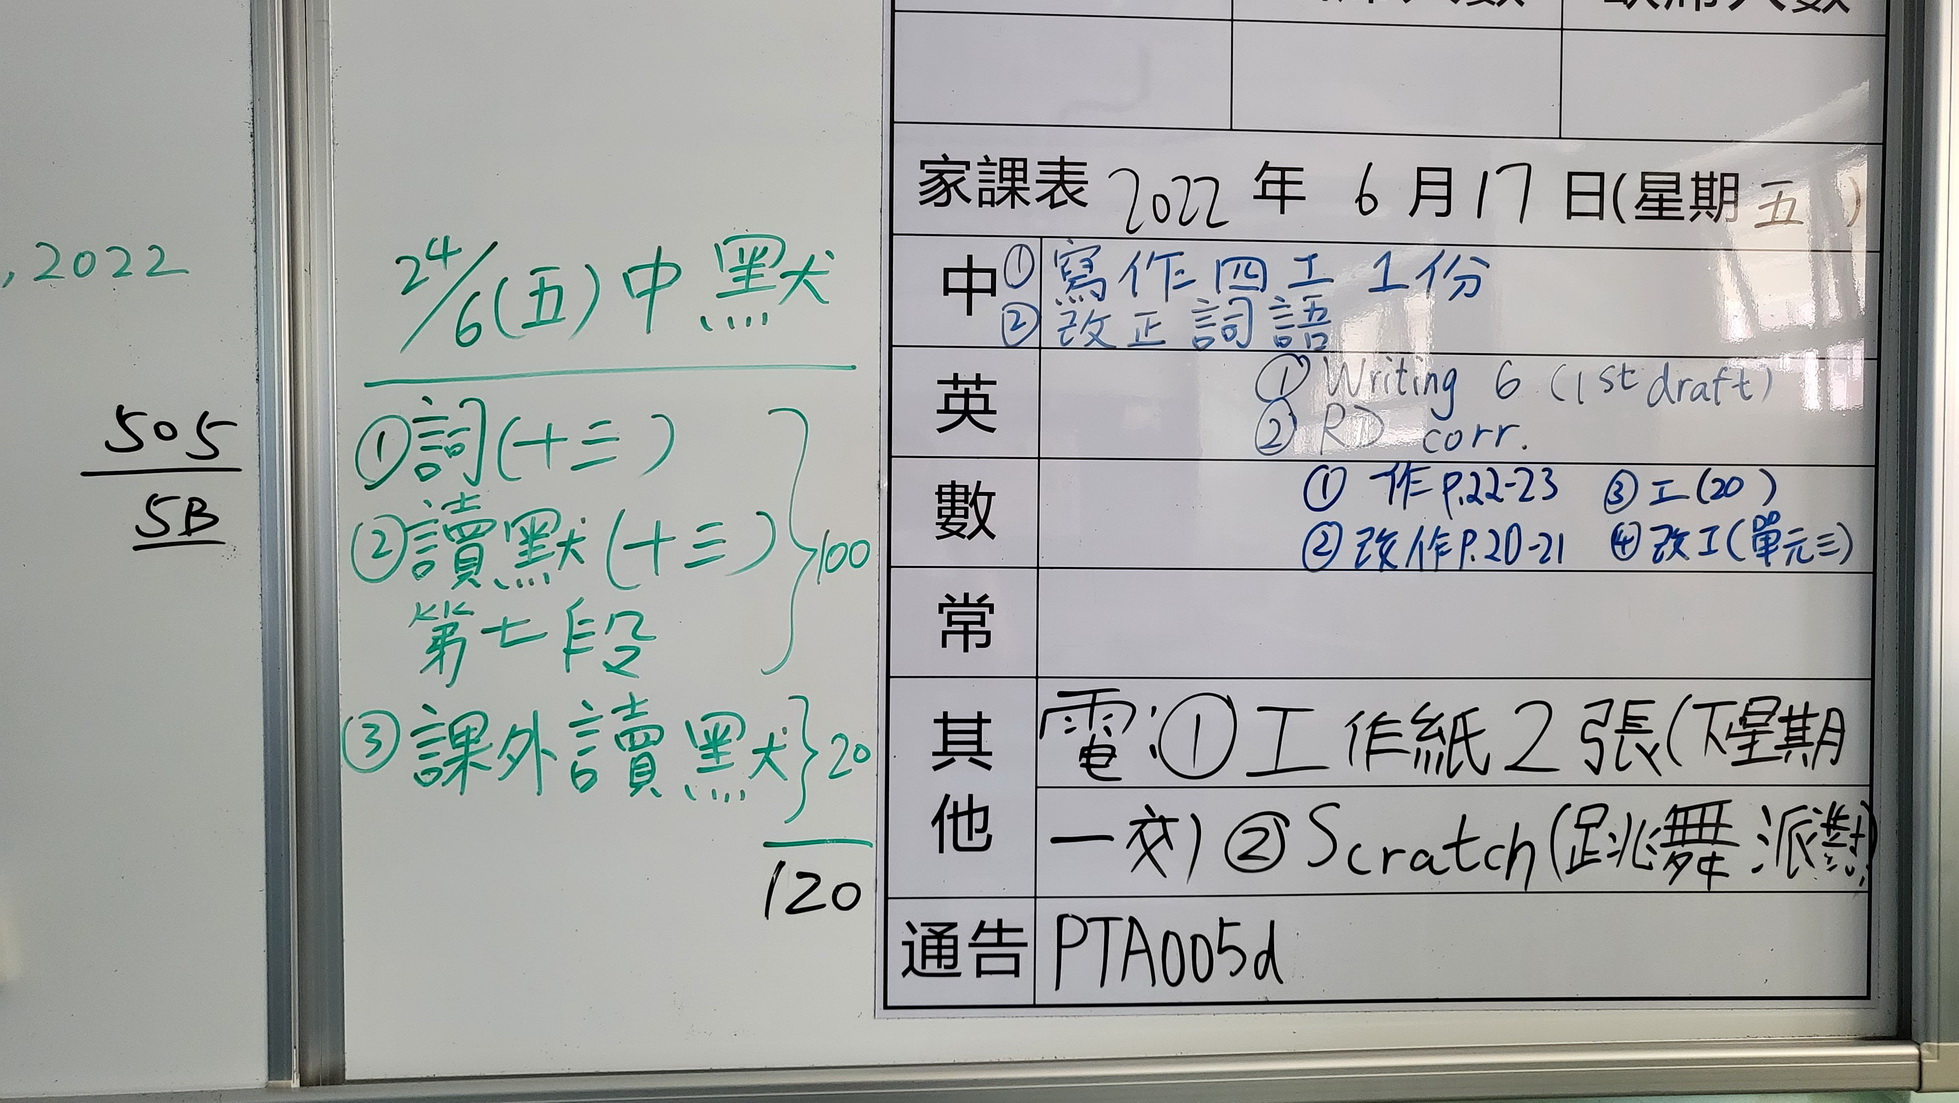 , 2022
505
5B
24/6(五)中默
①詞(十三)
②讀默(十三)
第七段
100
③課外讀默
20
120
家課表 2022 年 6 月 17 日(星期 五 )
中
①寫作四工 1份
②改正詞語
英
① Writing 6 (1st draft)
② RD corr.
數
① 作P.22-23 ③工(20)
②改作P.20-21 ④改工(單元三)
常
其他
電:①工作紙2張(下星期
一交) ②Scratch(跳舞派對)
通告 PTA005d